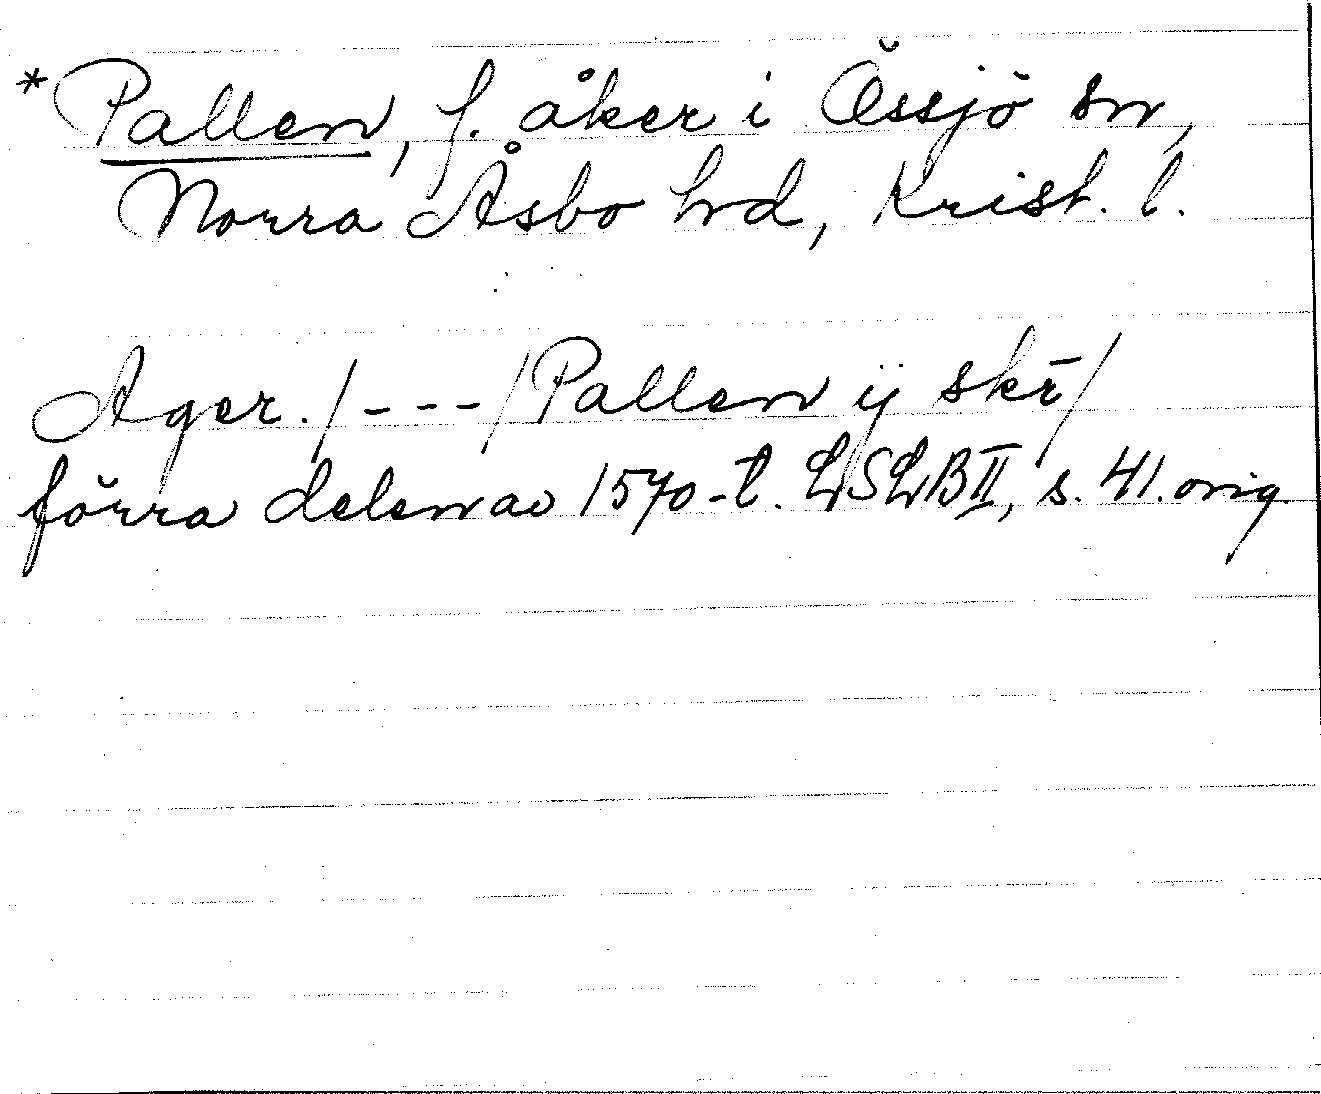 *Pallen, f. åker i Össjö sn,
Norra Åsbo hd, Krist. l.
Ager. /---/ Pallen ij skr̄ /
förra delen av 1570-t. LSLB II, s. 41. orig.